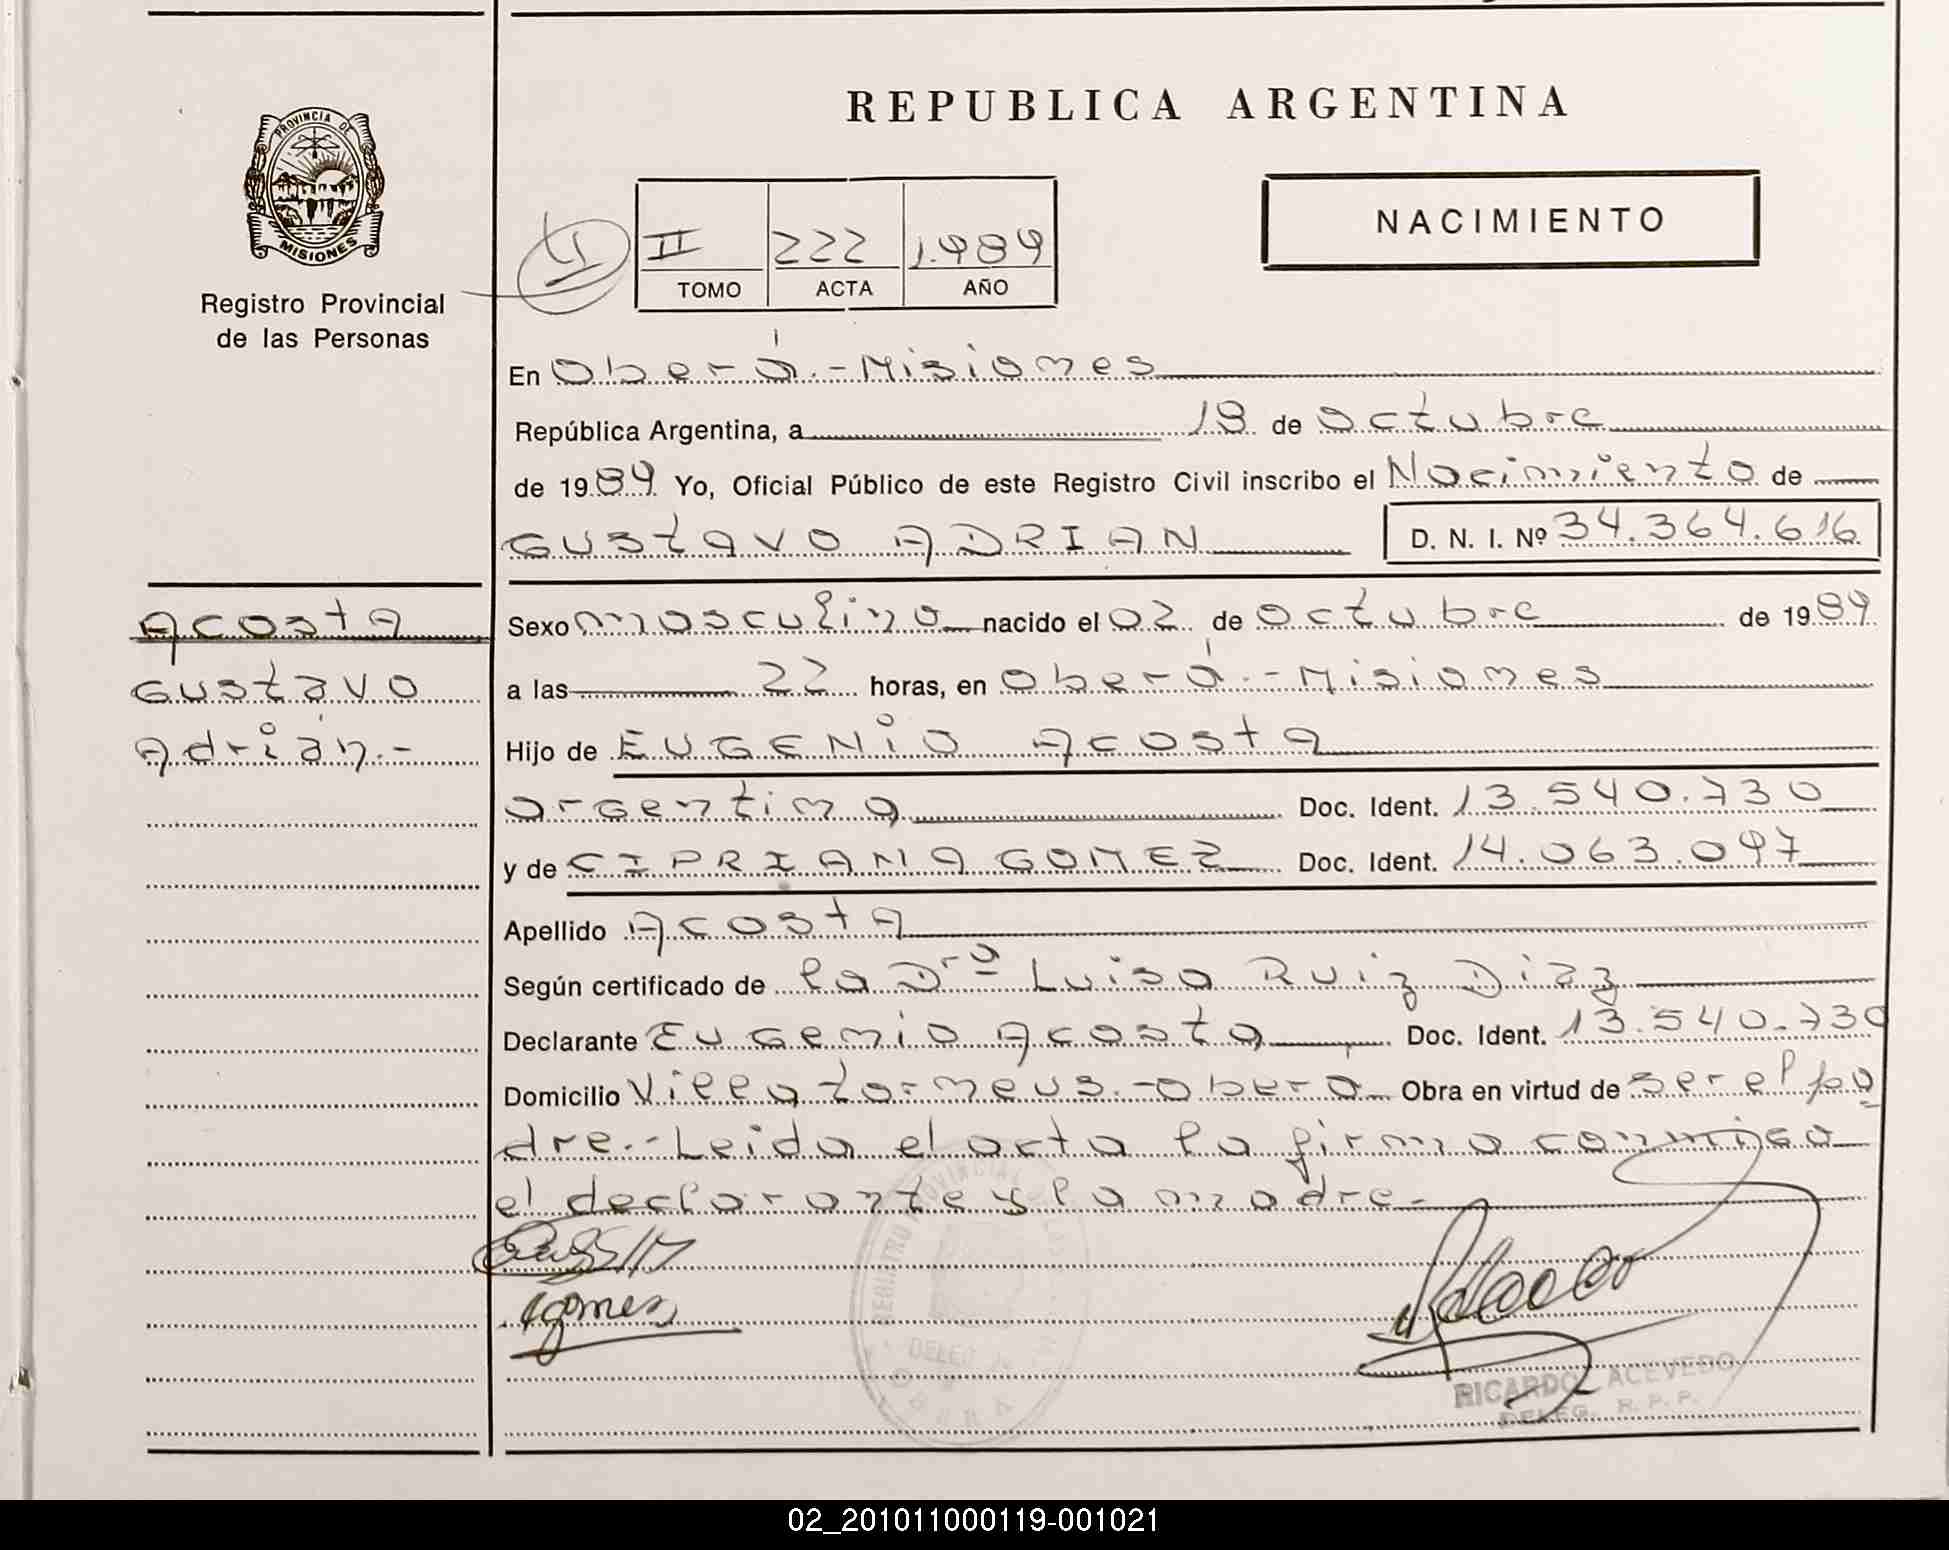 REPUBLICA ARGENTINA
PROVINCIA DE
MISIONES
Registro Provincial
de las Personas
NACIMIENTO
II 222 1.989
TOMO ACTA AÑO
En Oberá.-Misiones
República Argentina, a 18 de octubre
de 1989 Yo, Oficial Público de este Registro Civil inscribo el Nacimiento de
GUSTAVO ADRIAN D. N. I. Nº 34.364.616
Acosta
Gustavo
Adrián.-
Sexo masculino nacido el 02 de octubre de 1989
a las 22 horas, en Oberá.-Misiones
Hijo de EUGENIO ACOSTA
argentina Doc. Ident. 13.540.730
y de CIPRIANA GOMEZ Doc. Ident. 14.063.097
Apellido Acosta
Según certificado de la Dra Luisa Ruiz Diaz
Declarante Eugenio Acosta Doc. Ident. 13.540.730
Domicilio Villa tormeus.-Oberá Obra en virtud de ser el pa
dre.-Leida el acta la firma conmigo
el declarante y la madre.-
gomez
REGISTRO PROVINCIAL DE LAS
DELEG.
OBERA
RICARDO ACEVEDO
DELEG. R. P. P.
02_201011000119-001021